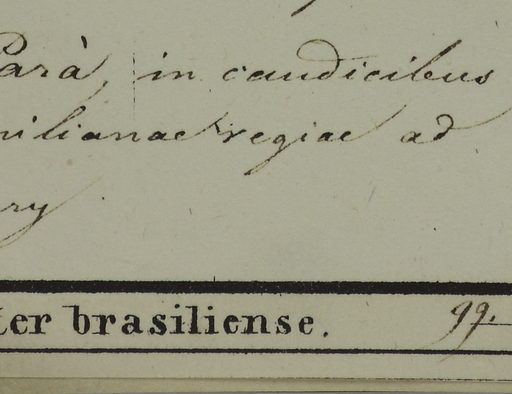 Parà, in caudicibus
nilianae regiae ad
ry
ter brasiliense.
99.